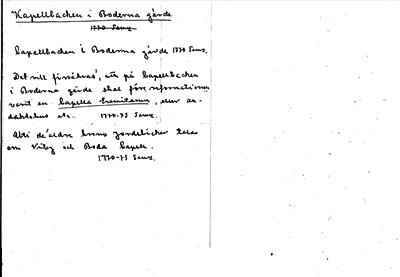 Kapellbacken i Boderna gärde
1770 Sanz
Capellbacken i Boderna gärde 1770 Sanz.
Det vill försäkras, att på Capellbacken
i Boderna gärde skal före reformationen
varit en Capella eremitarum, eller an-
daktshus etc. 1770-73 Sanz.
Uti de äldre krono jordeböcker talas
om Viby och Boda Capell.
1770-73 Sanz.